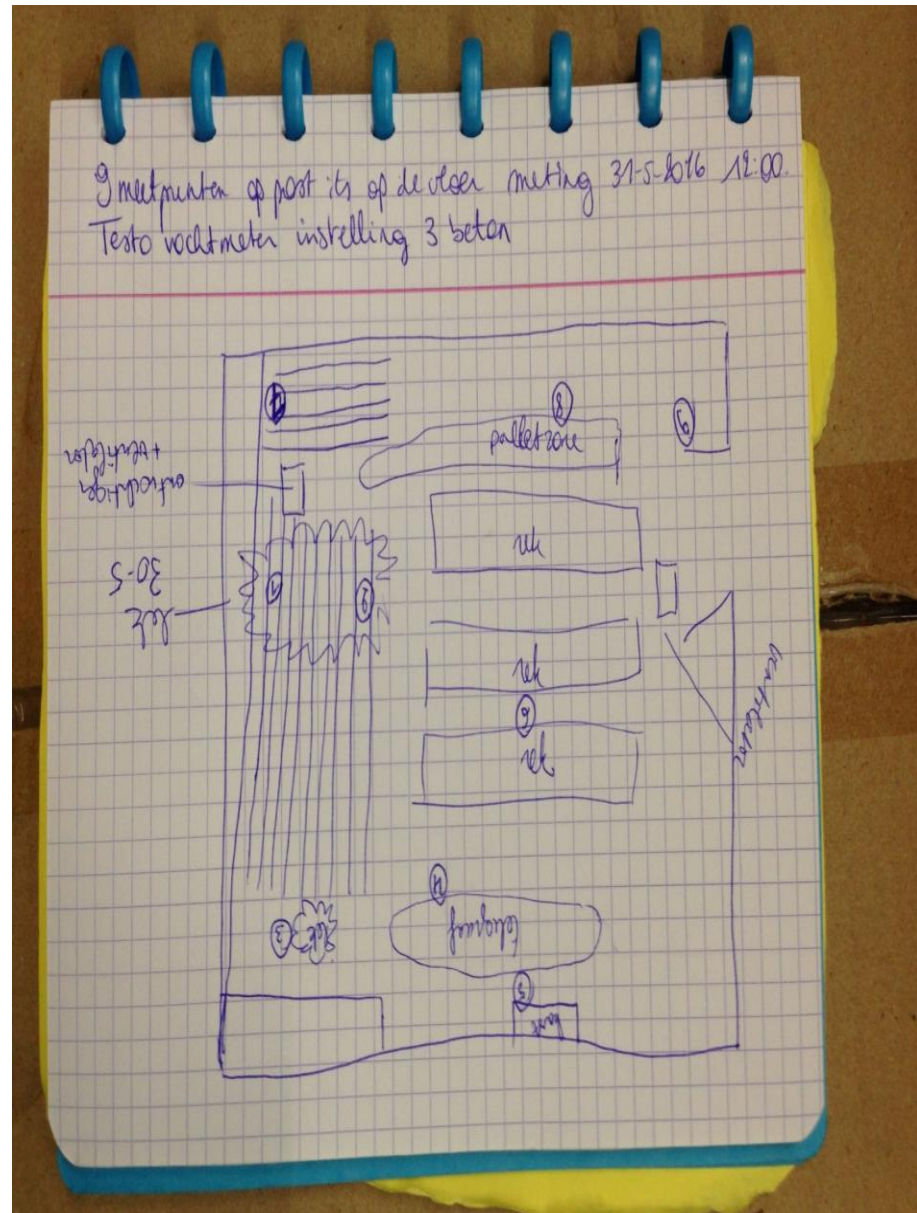 9 meetpunten op post its op de vloer meting 31-5-2016 12:00.
Testo vochtmeter instelling 3 beton
7
8
palletzone
9
ontvochtiger
+ ventilator
rek
lek
30-5
1
2
rek
6
rek
ventilator
4
telegraaf
3
lek
5
kast